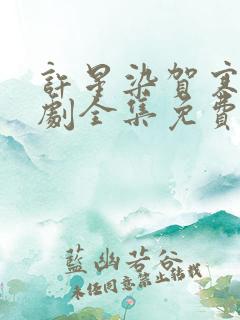 許星染賀寒
劇全集免費
藍幽若谷
未經同意禁止轉載